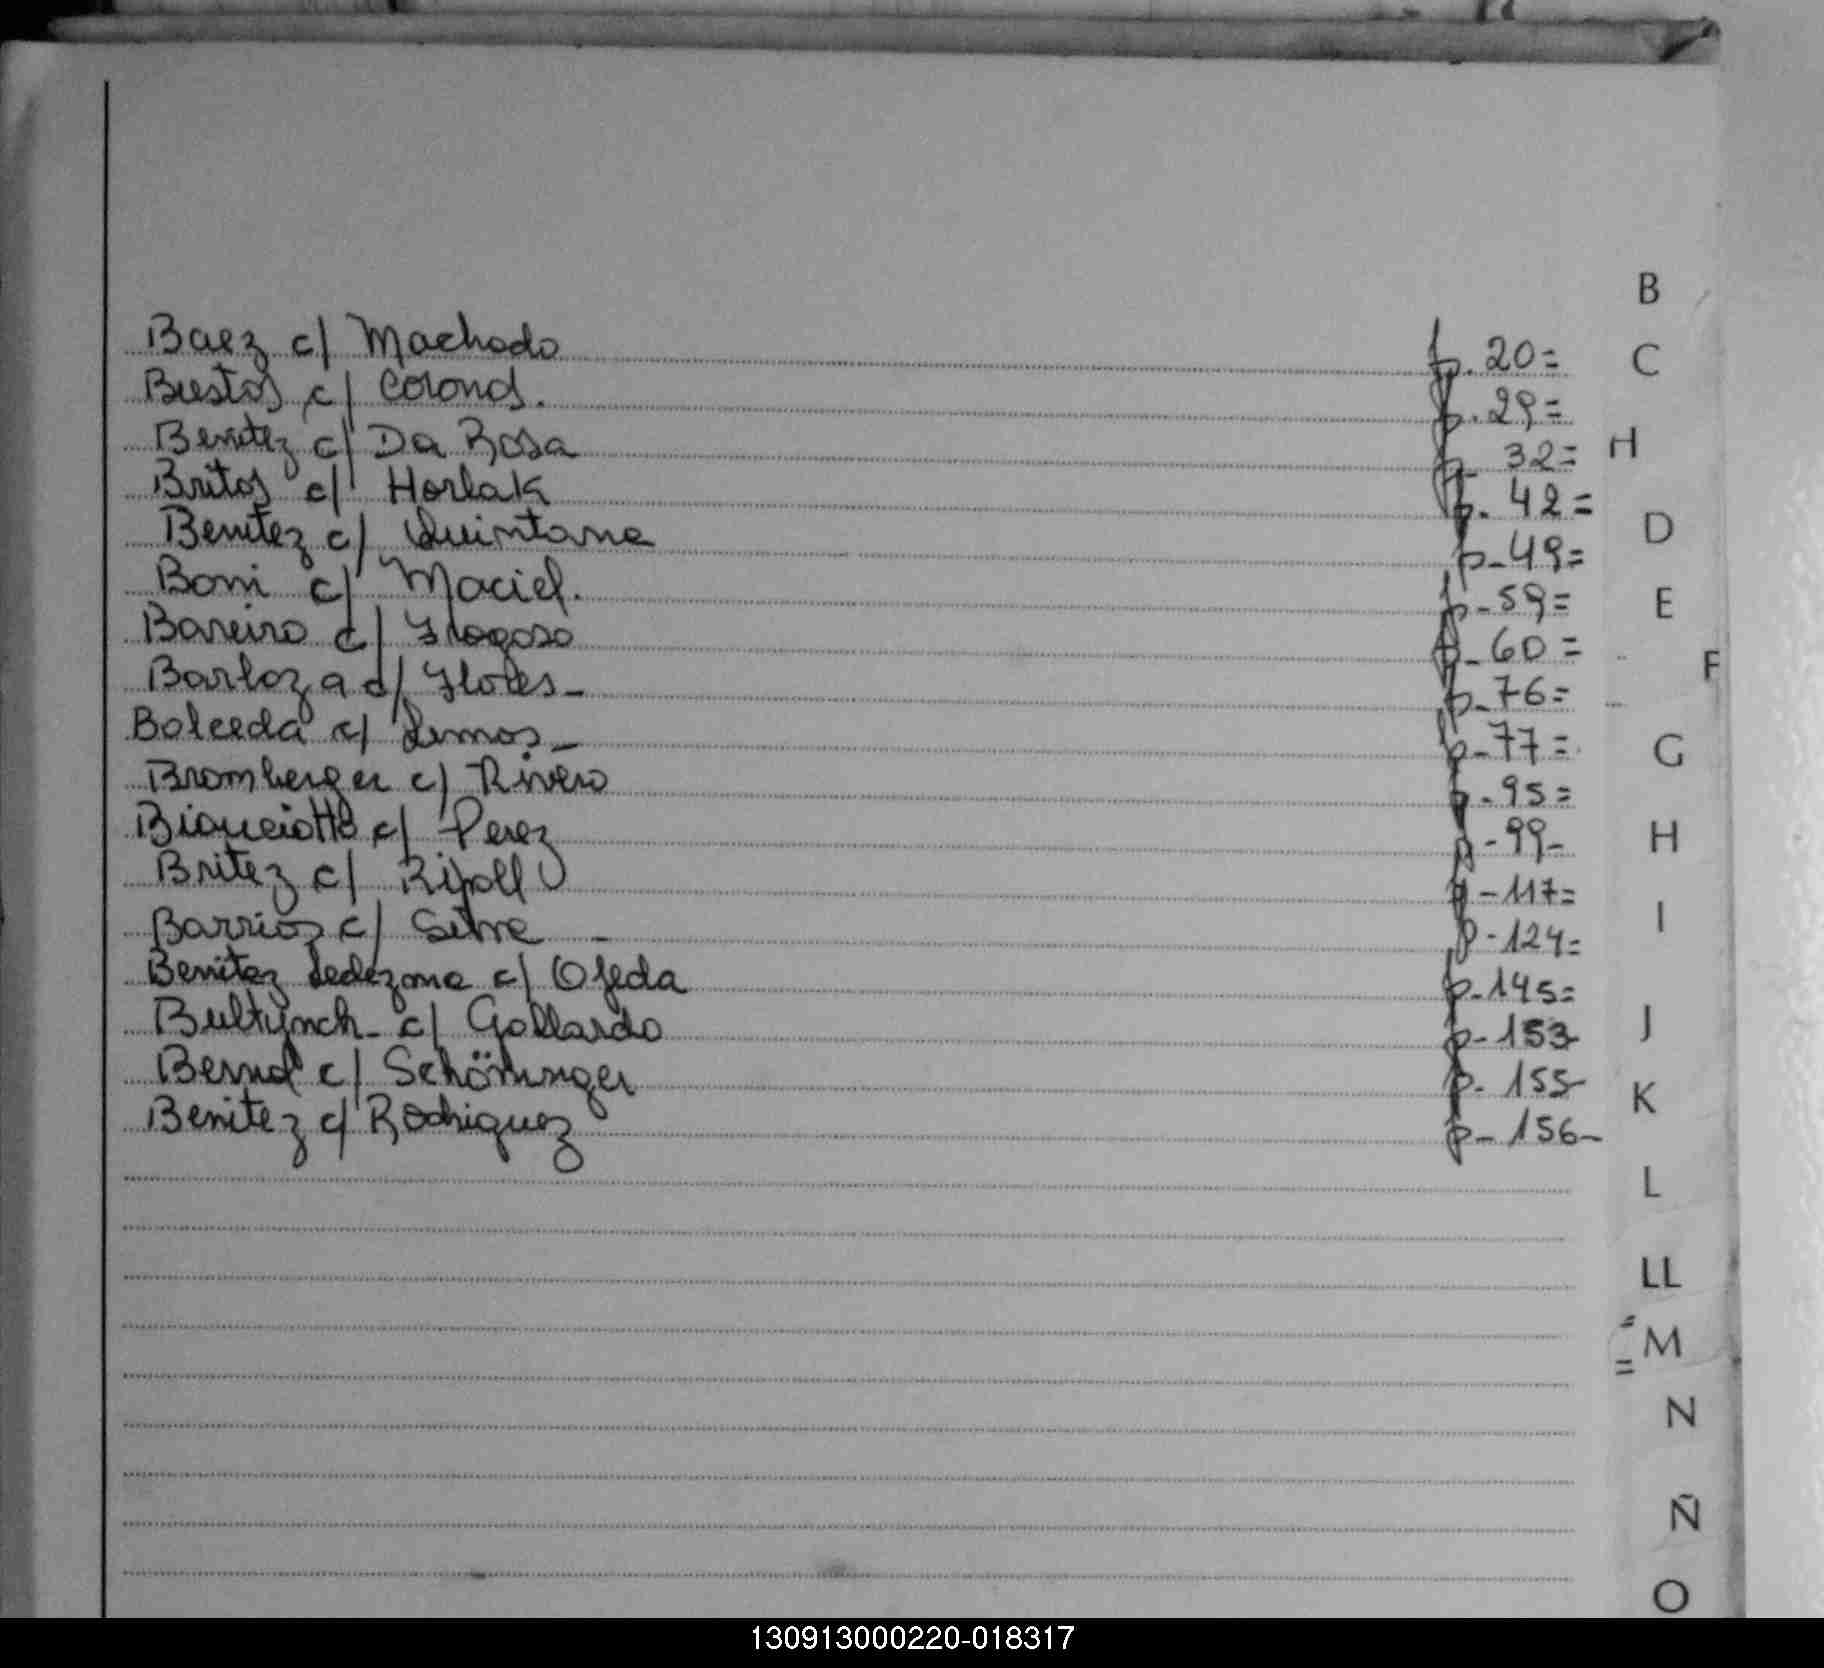 B
Baez c/ Machado p. 20=
C
Bustos c/ Coronel. p. 29=
Benitez c/ Da Rosa p- 32=
H
Britos c/ Horlak p. 42=
D
Benitez c/ Quintana p-49=
Boni c/ Maciel. p-59=
E
Bareiro c/ Fragoso p-60=
F
Barboza c/ Flores- p-76=
Balceda c/ Lemos- p-77=
G
Bromberger c/ Rivero p-95=
Bianciotto c/ Perez p-99-
H
Britez c/ Ripoll p-117=
I
Barrios c/ p-124=
Benitez Ledezma c/ Ojeda p-145=
J
Bultynch- c/ Gallardo p-153-
Bernd c/ Schöninger p- 155-
K
Benitez c/ Rodriguez p- 156-
L
LL
M
N
Ñ
O
130913000220-018317